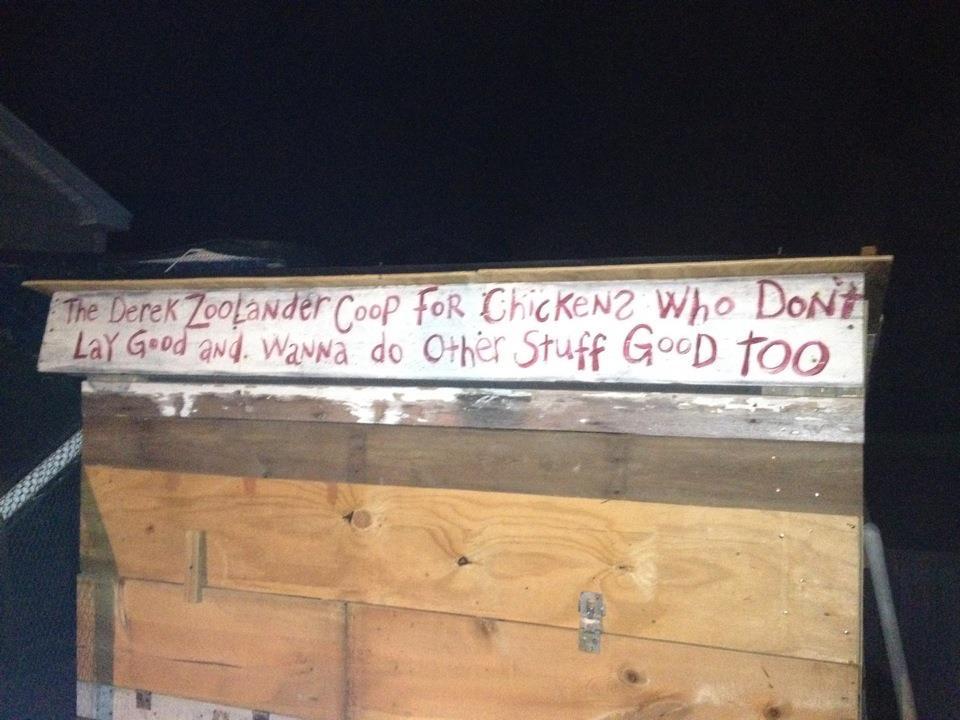 The Derek Zoolander Coop For Chickens Who Don't
Lay Good and. Wanna do Other Stuff Good Too